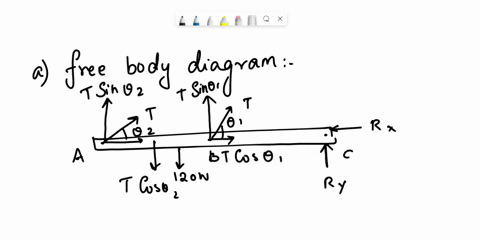 a) free body diagram:-
T Sinθ2 T Sinθ1
T T
θ2 θ1
Rx
A B T Cosθ1 C
T Cosθ2 120N
Ry